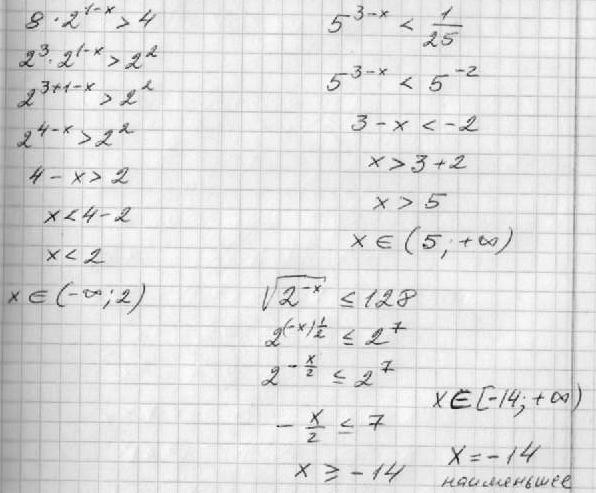 8 · 2^{1-x} > 4
2^3 · 2^{1-x} > 2^2
2^{3+1-x} > 2^2
2^{4-x} > 2^2
4 - x > 2
x < 4 - 2
x < 2
x ∈ (-∞; 2)
5^{3-x} < 1/25
5^{3-x} < 5^{-2}
3 - x < -2
x > 3 + 2
x > 5
x ∈ (5; +∞)
√(2^{-x}) ≤ 128
2^{(-x)1/2} ≤ 2^7
2^{-x/2} ≤ 2^7
-x/2 ≤ 7
x ≥ -14
x ∈ [-14; +∞)
x = -14
наименьшее